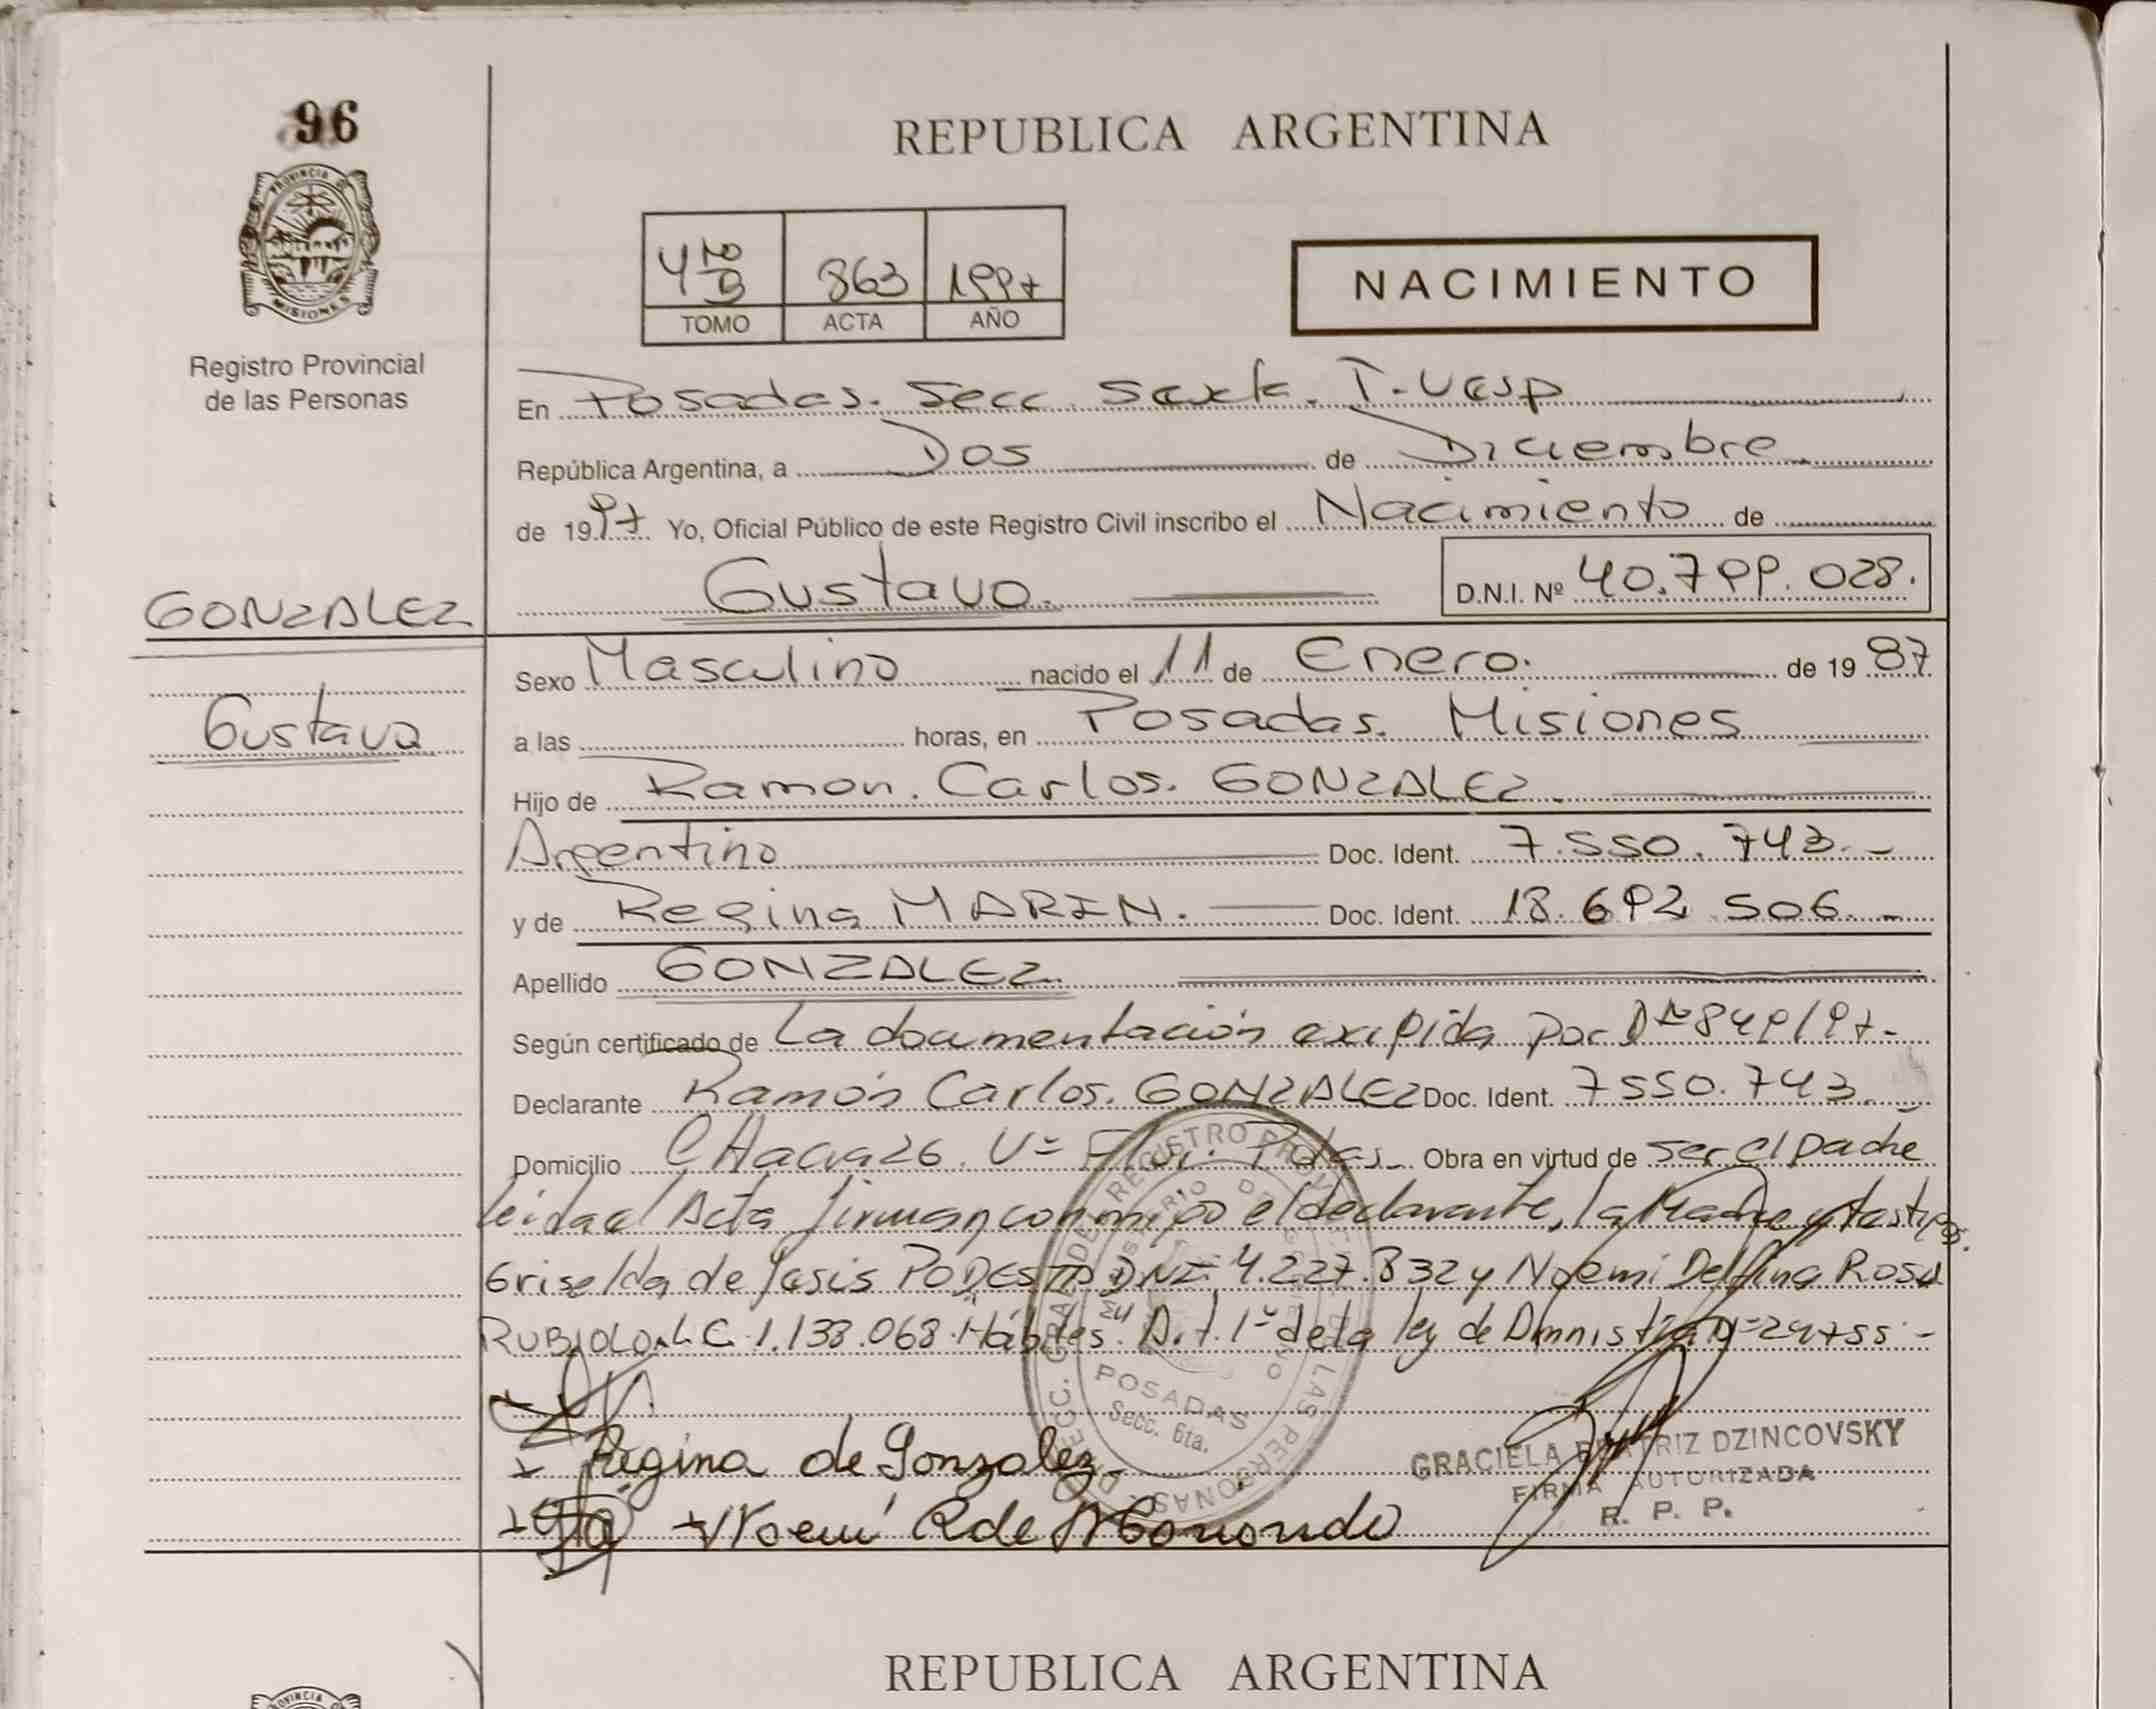 96
PROVINCIA DE
MISIONES
Registro Provincial
de las Personas
GONZALEZ
Gustavo
REPUBLICA ARGENTINA
4to B 863 1997
TOMO ACTA AÑO
NACIMIENTO
En Posadas. Secc. Sexta. T. Vesp
República Argentina, a Dos de Diciembre
de 1997 Yo, Oficial Público de este Registro Civil inscribo el Nacimiento de
Gustavo. D.N.I. Nº 40.799.028.
Sexo Masculino nacido el 11 de Enero. de 1987
a las horas, en Posadas. Misiones
Hijo de Ramon. Carlos. GONZALEZ.
Argentino Doc. Ident. 7.550.743.-
y de Regina MARIN. Doc. Ident. 18.692.506.-
Apellido GONZALEZ.
Según certificado de La documentación exigida por D Nº 849/97-
Declarante Ramón Carlos. GONZALEZ Doc. Ident. 7550.743.-
Domicilio CHacra 26. Vº Pdas- Obra en virtud de ser el padre
leida el Acta firman conmigo el declarante, la Madre y testigos.
Griselda de Jesis PODESTA DNI. 4.227.832 y Noemi Delfina Rosa
RUBIOLO L.C. 1.138.068. Hábiles. Art. 1º de la ley de Amnistia Nº 24755.-
Regina de Gonzalez
Noemí R de
DELEGACIÓN REGISTRO PROVINCIAL DE LAS PERSONAS
MINISTERIO DE GOBIERNO
POSADAS
Secc. 6ta.
GRACIELA BEATRIZ DZINCOVSKY
FIRMA AUTORIZADA
R. P. P.
REPUBLICA ARGENTINA
PROVINCIA